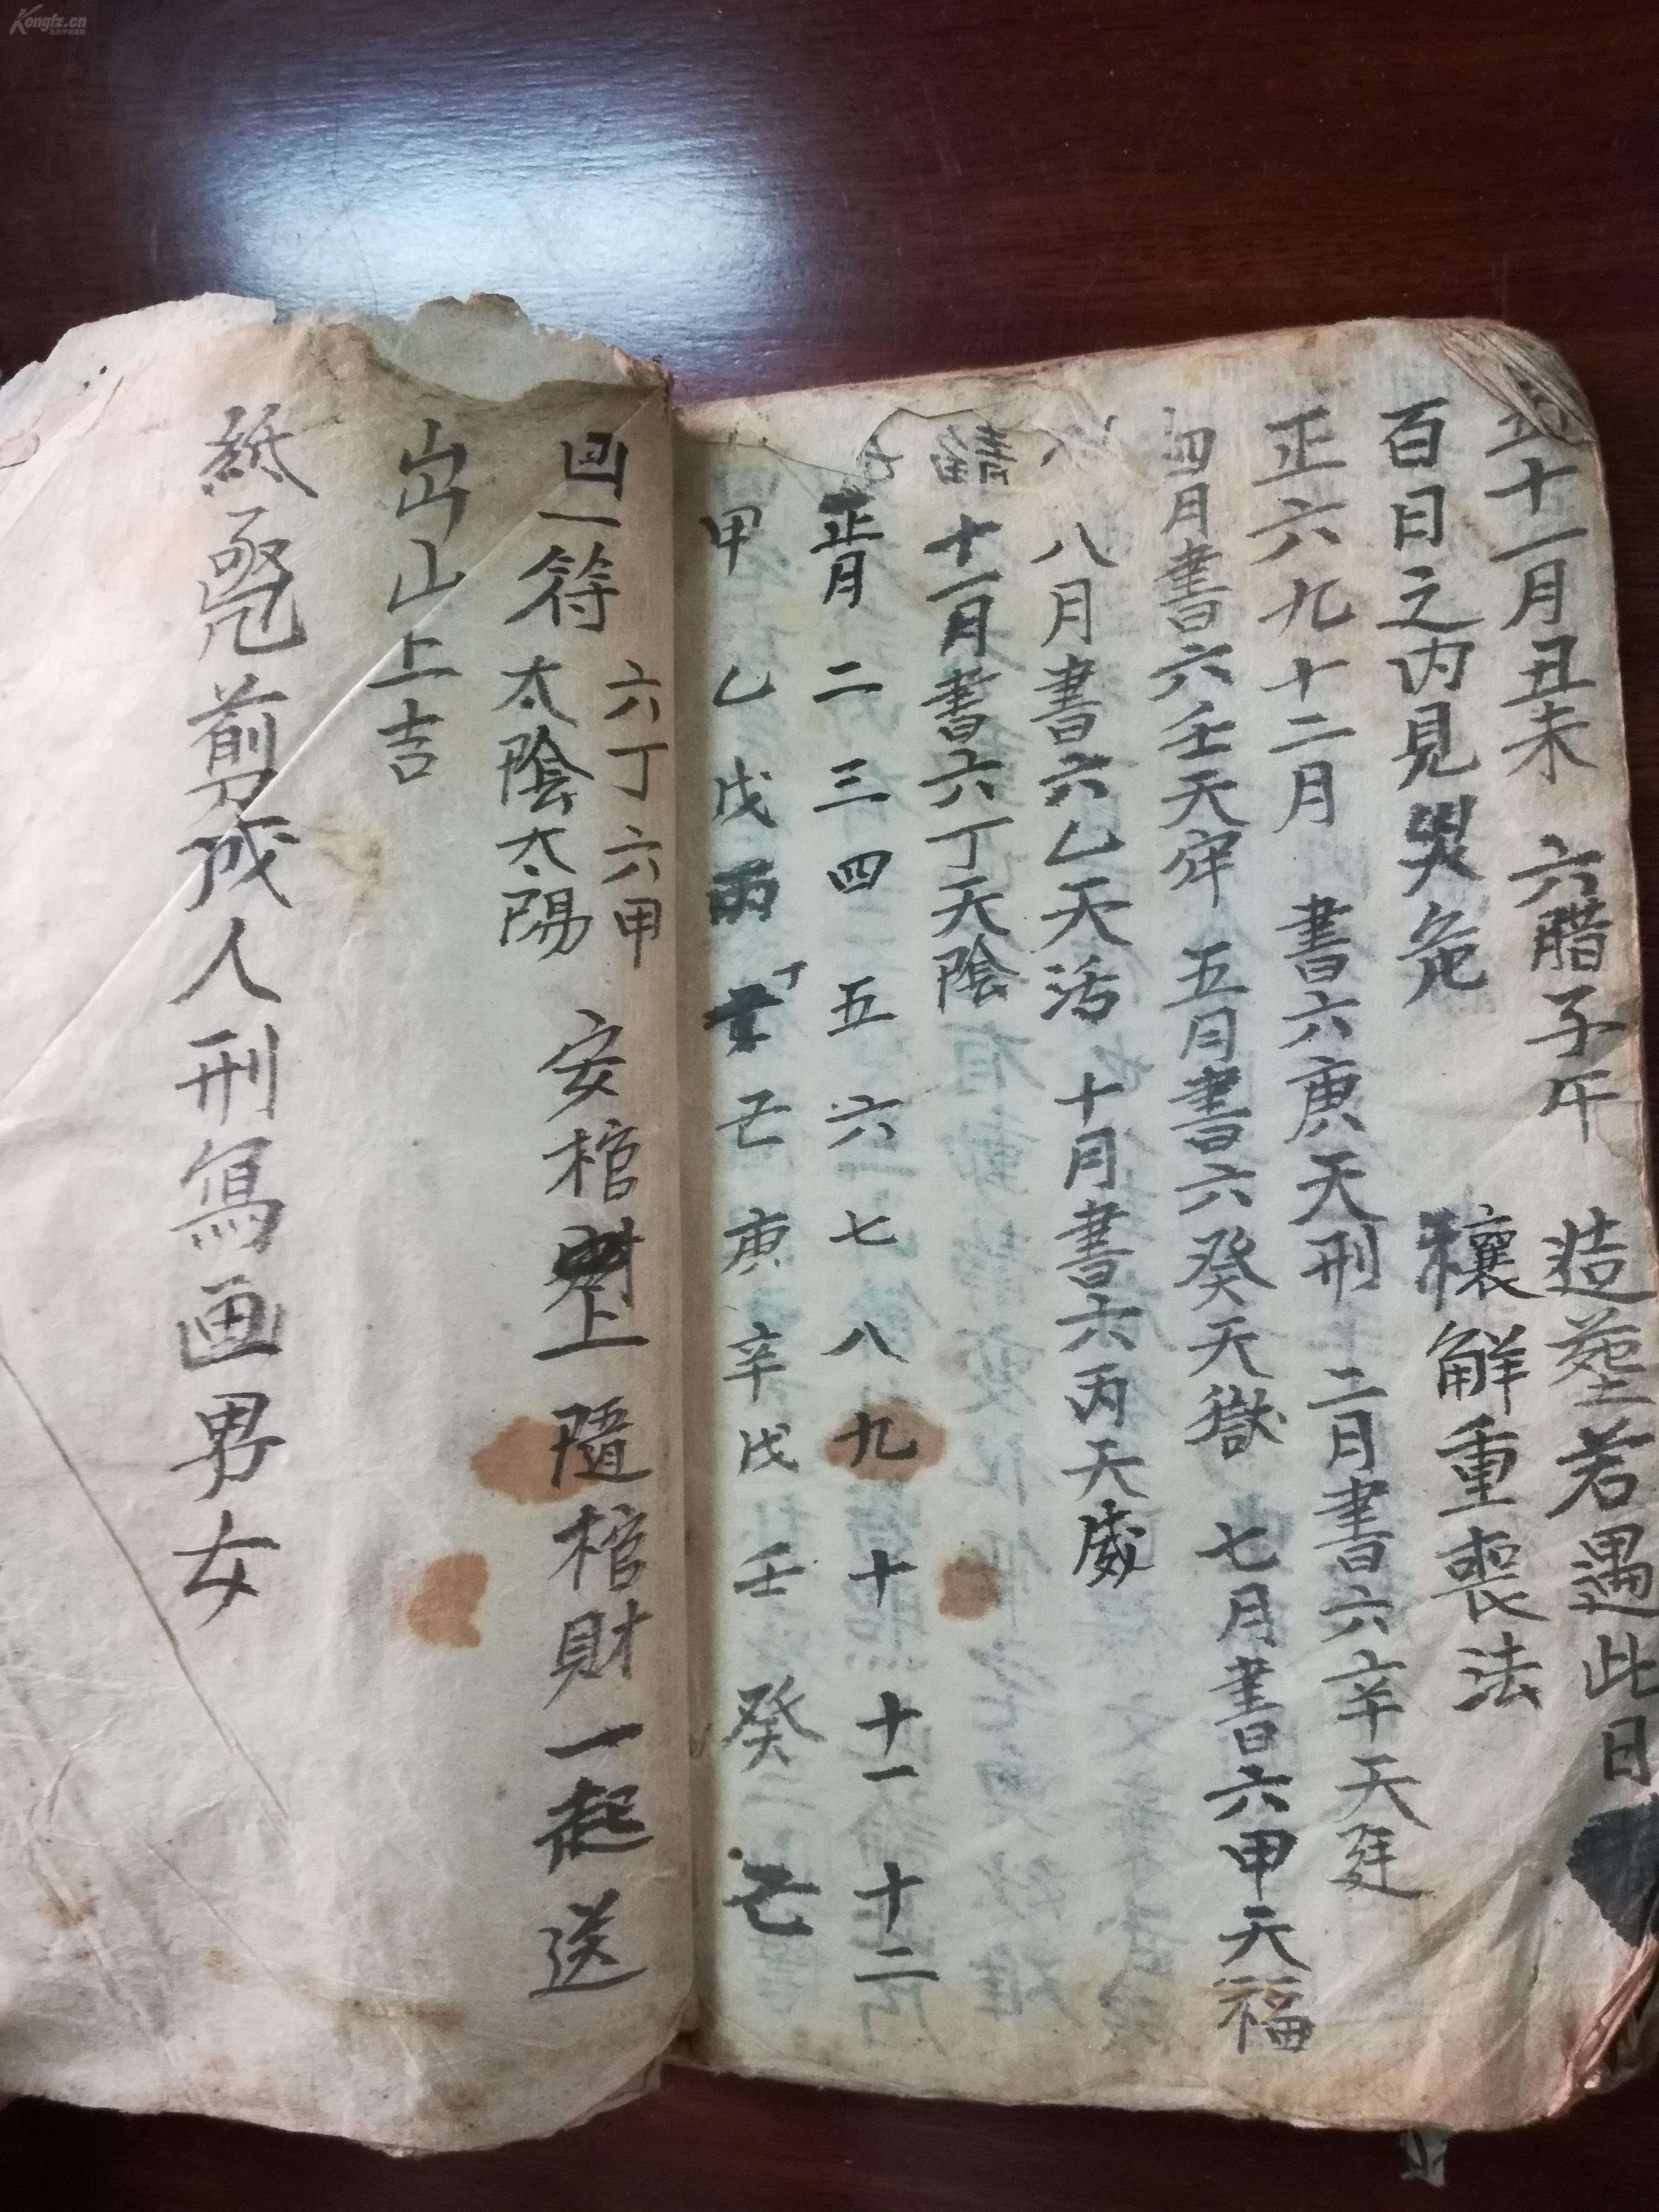 五十一月丑未 六腊子午 造塟若遇此日
百日之内見哭危 穰解重喪法
正六九十二月 書六庚天刑 二月書六辛天廷
四月書六壬天牢 五月書六癸天獄 七月書六甲天福
八月書六乙天活 十月書六丙天威
十一月書六丁天陰
正月 二 三 四 五 六 七 八 九 十 十一 十二
甲 乙 戊 丙 丁 己 庚 辛 戊 壬 癸 己
六丁六甲
四一符 太陰太陽 安棺上 隨棺財一起送
出山上吉
紙 剪成人刑寫画男女
Kongfz.cn